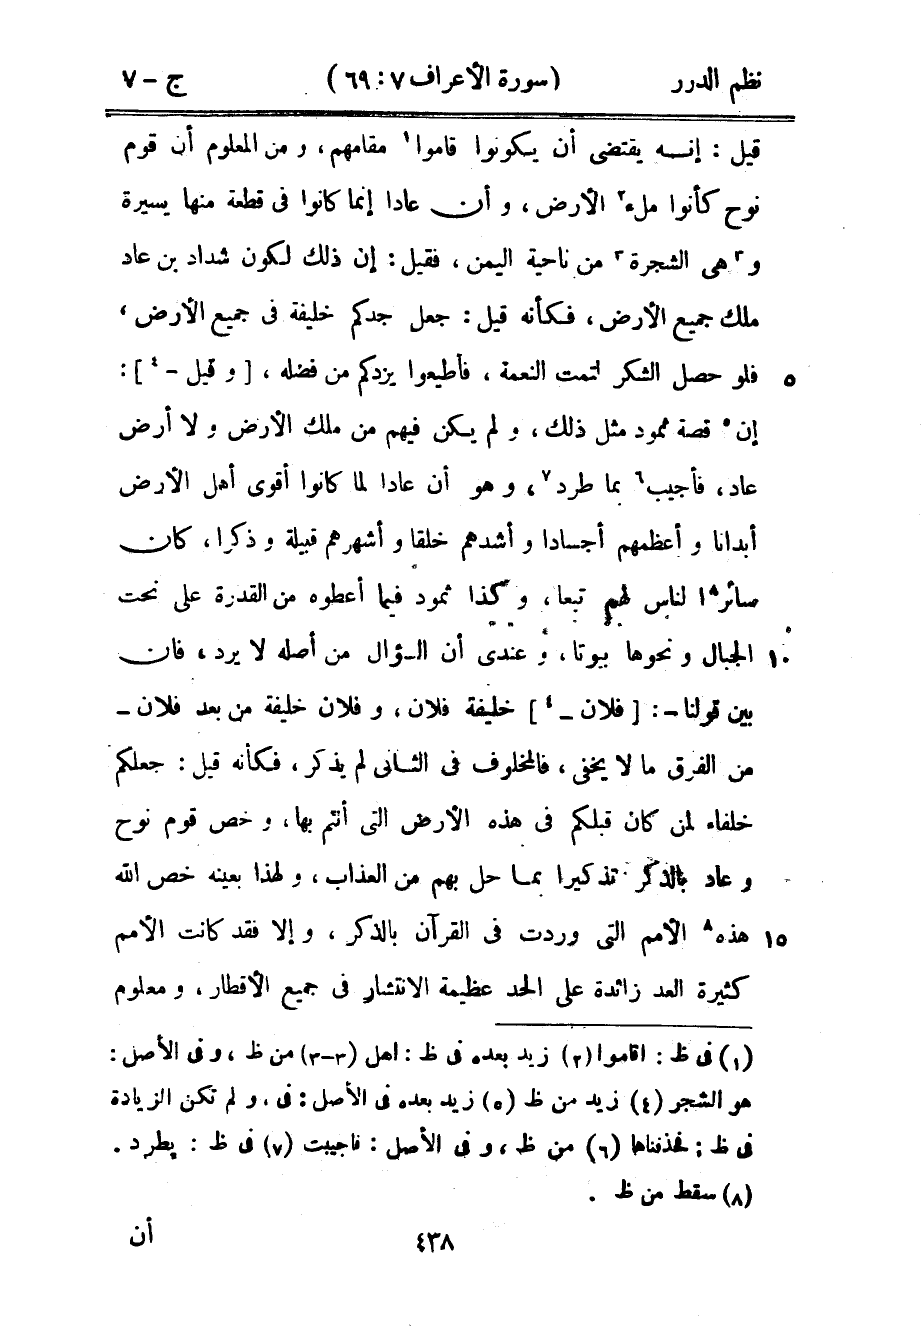 نظم الدرر (سورة الأعراف ٧ : ٦٩) ج - ٧
قيل : إنه يقتضى أن يكونوا قاموا١ مقامهم ، و من المعلوم أن قوم
نوح كأنوا ملء٢ الأرض ، و أن عادا إنما كانوا فى قطعة منها يسيرة
و٣ هى الشجرة٣ من ناحية اليمن ، فقيل : إن ذلك لكون شداد بن عاد
ملك جميع الأرض ، فكأنه قيل : جعل جدكم خليفة فى جميع الأرض ،
٥ فلو حصل الشكر لتمت النعمة ، فأطيعوا يزدكم من فضله ، [ و قيل - ٤ ] :
إن٥ قصة ثمود مثل ذلك ، و لم يكن فيهم من ملك الأرض و لا أرض
عاد ، فأجيب٦ بما طرد٧ ، و هو أن عادا لما كانوا أقوى أهل الأرض
أبدانا و أعظمهم أجسادا و أشدهم خلقا و أشهرهم قبيلة و ذكرا ، كان
سائر٨ا لناس لهم تبعا ، و كذا ثمود فيما أعطوه من القدرة على نحت
١٠ الجبال و نحوها بيوتا ، و عندى أن السؤال من أصله لا يرد ، فان
بين قولنا - : [ فلان - ٤ ] خليفة فلان ، و فلان خليفة من بعد فلان -
من الفرق ما لا يخفى ، فالمخلوف فى الثانى لم يذكر ، فكأنه قيل : جعلكم
خلفاء لمن كان قبلكم فى هذه الأرض التى أنتم بها ، و خص قوم نوح
و عاد بالذكر تذكيرا بما حل بهم من العذاب ، و لهذا بعينه خص الله
١٥ هذه٨ الأمم التى وردت فى القرآن بالذكر ، و إلا فقد كانت الأمم
كثيرة العد زائدة على الحد عظيمة الانتشار فى جميع الأقطار ، و معلوم
(١) فى ظ : اقاموا (٢) زيد بعده فى ظ : اهل (٣-٣) من ظ ، و فى الأصل :
هو الشجر (٤) زيد من ظ (٥) زيد بعده فى الأصل : فى ، و لم تكن الزيادة
فى ظ ; فحذفناها (٦) من ظ ، و فى الأصل : فاجيبت (٧) فى ظ : يطرد .
(٨) سقط من ظ .
٤٣٨ أن